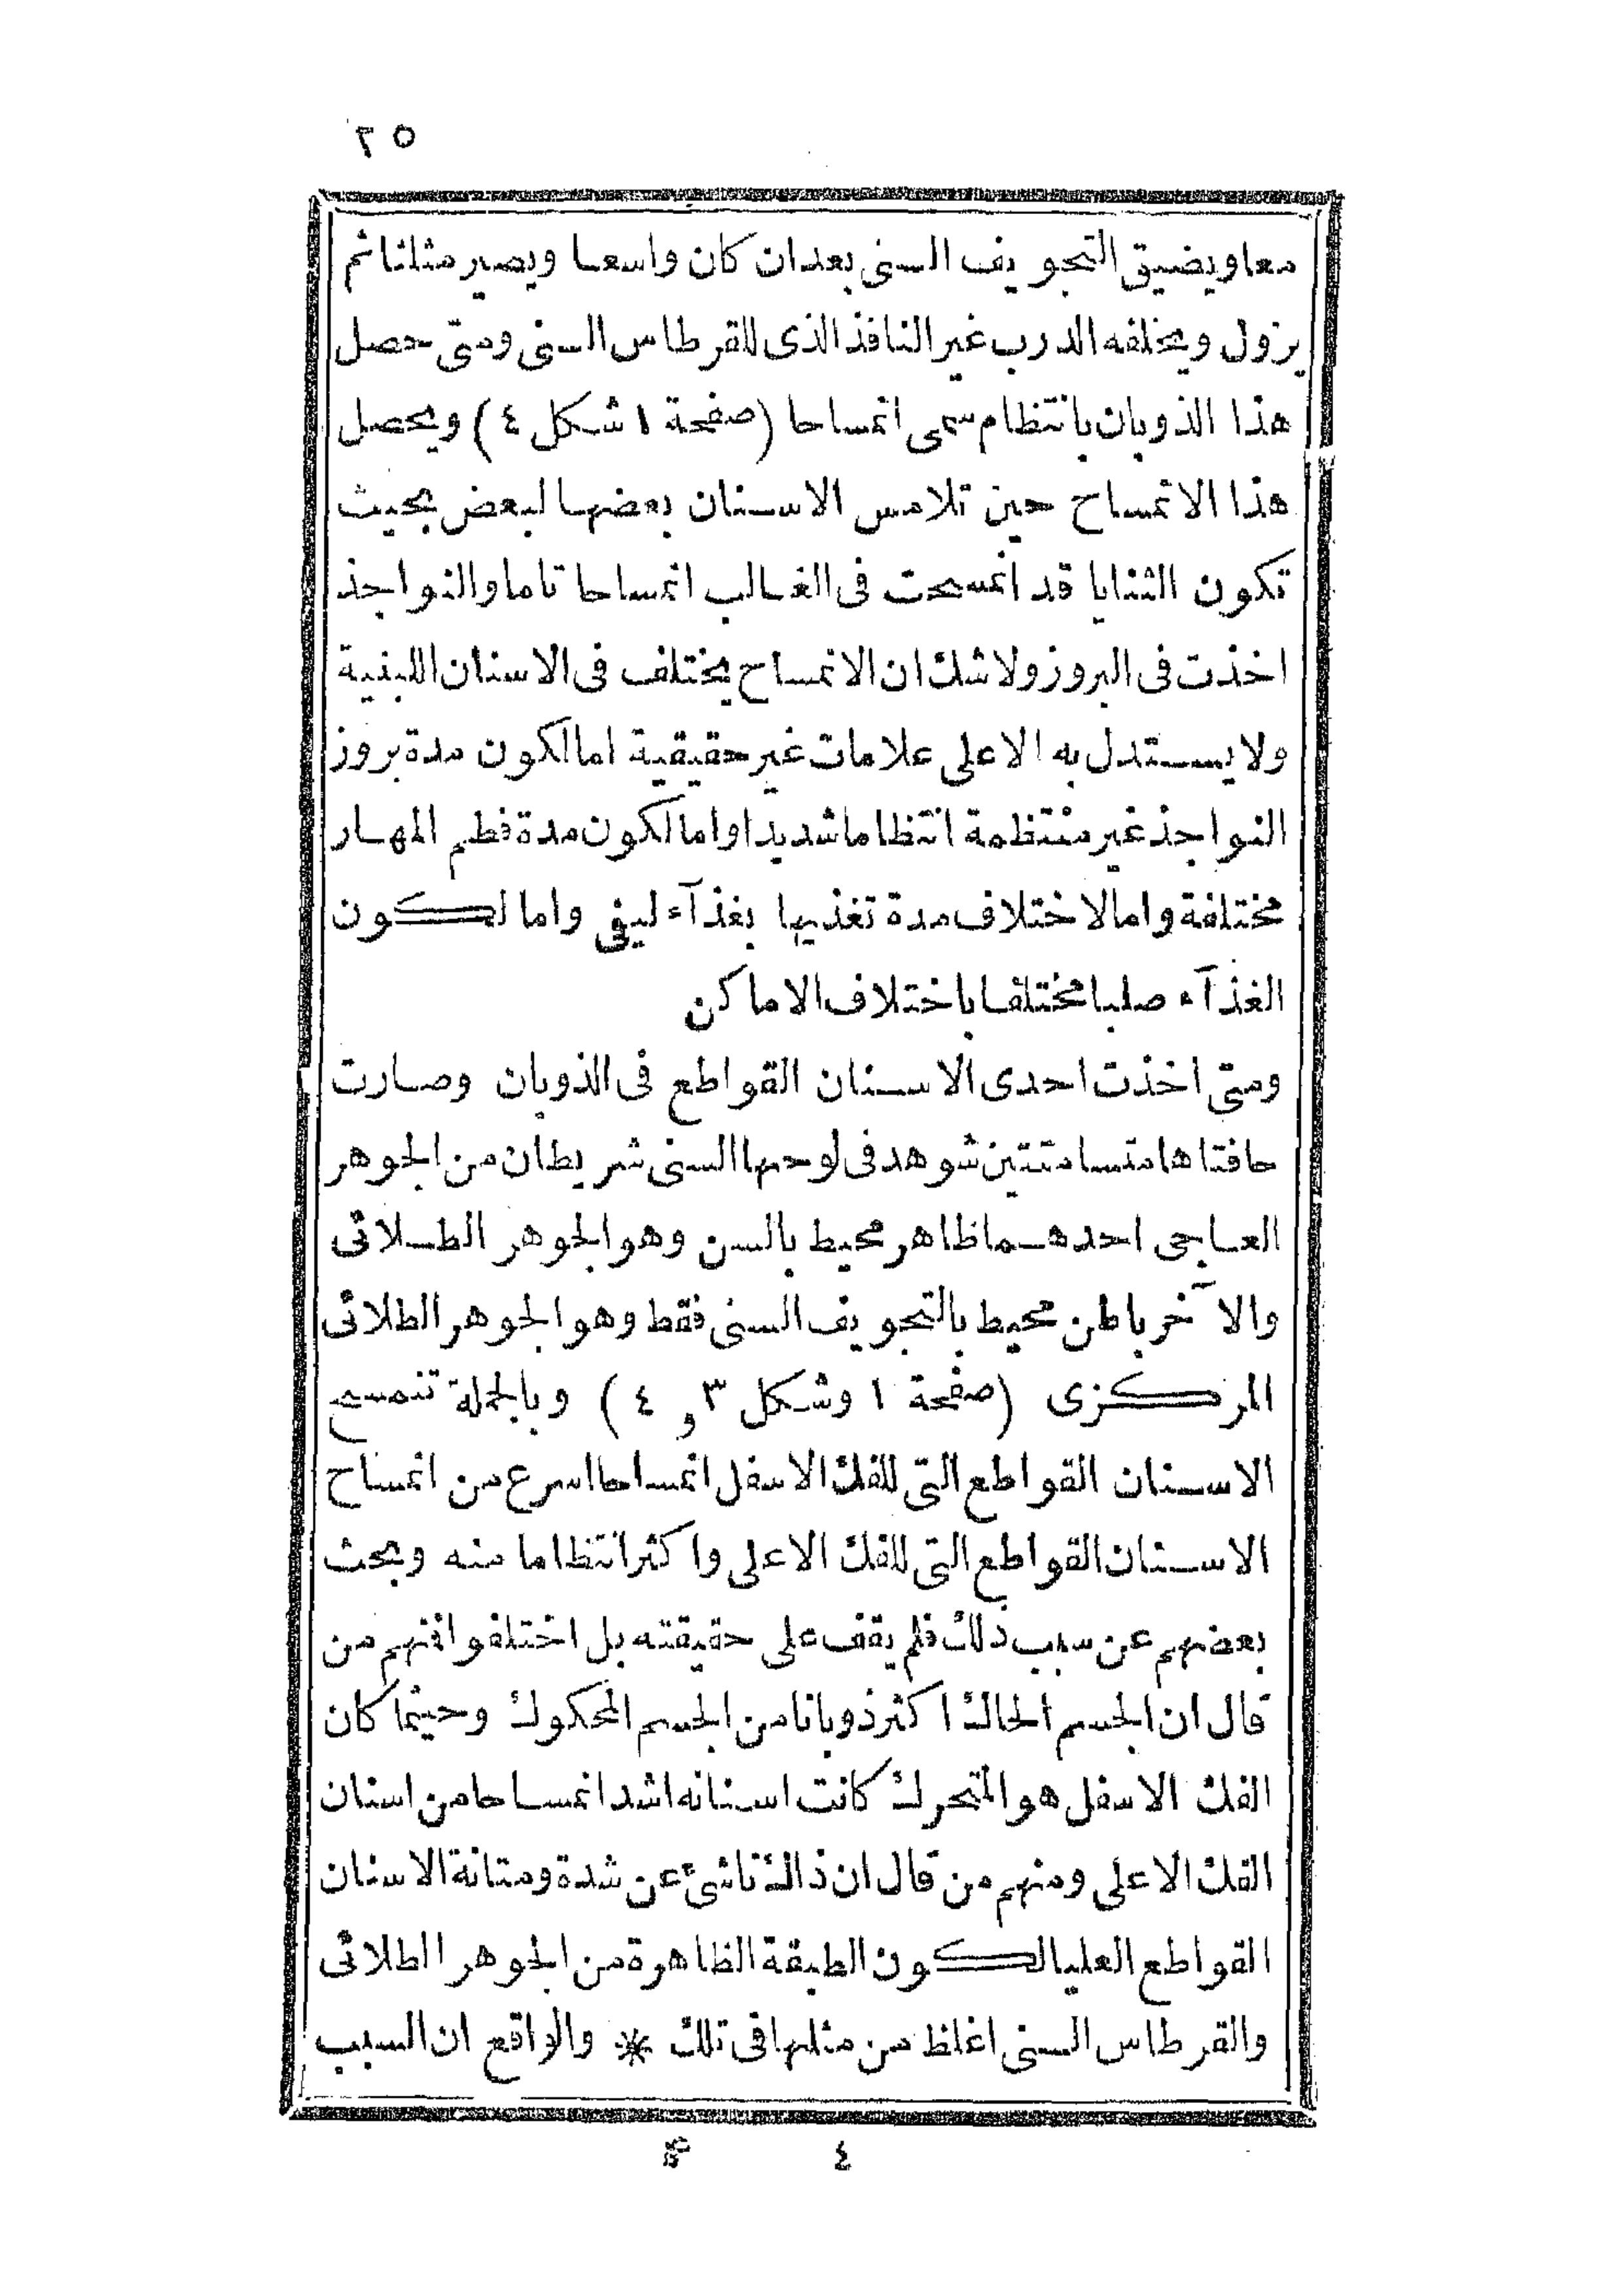 ٢٥
معا ويضيق التجويف السنى بعد ان كان واسعا ويصير مثلثا ثم
يزول ويخلفه الدرب غير النافذ الذى للقرطاس السنى ومتى حصل
هذا الذوبان بانتظام سمى انمساحا (صفحة ١ شكل ٤) ويحصل
هذا الانمساح حين تلامس الاسنان بعضها لبعض بحيث
تكون الثنايا قد انمسحت فى الغالب انمساحا تاما والنواجذ
اخذت فى البروز ولا شك ان الانمساح يختلف فى الاسنان اللبنية
ولا يستدل به الا على علامات غير حقيقية اما لكون مدة بروز
النواجذ غير منتظمة انتظاما شديدا واما لكون مدة فطم المهار
مختلفة واما لاختلاف مدة تغذيها بغذآء ليفى واما لكون
الغذآء صلبا مختلفا باختلاف الاماكن
ومتى اخذت احدى الاسنان القواطع فى الذوبان وصارت
حافتاها متسامتتين شوهد فى لوحها السنى شريطان من الجوهر
العاجى احدهما ظاهر محيط بالسن وهو الجوهر الطلائى
والآخر باطن محيط بالتجويف السنى فقط وهو الجوهر الطلائى
المركزى (صفحة ١ وشكل ٣ و ٤) وبالجملة تنمسح
الاسنان القواطع التى للفك الاسفل انمساحا اسرع من انمساح
الاسنان القواطع التى للفك الاعلى واكثر انتظاما منه وبحث
بعضهم عن سبب ذلك فلم يقف على حقيقته بل اختلفوا فنهم من
قال ان الجسم الحاك اكثر ذوبانا من الجسم المحكوك وحيثما كان
الفك الاسفل هو المتحرك كانت اسنانه اشد انمساحا من اسنان
الفك الاعلى ومنهم من قال ان ذاك ناشئ عن شدة ومتانة الاسنان
القواطع العليا لكون الطبقة الظاهرة من الجوهر الطلائى
والقرطاس السنى اغلظ من مثلها فى تلك * والواقع ان السبب
٤